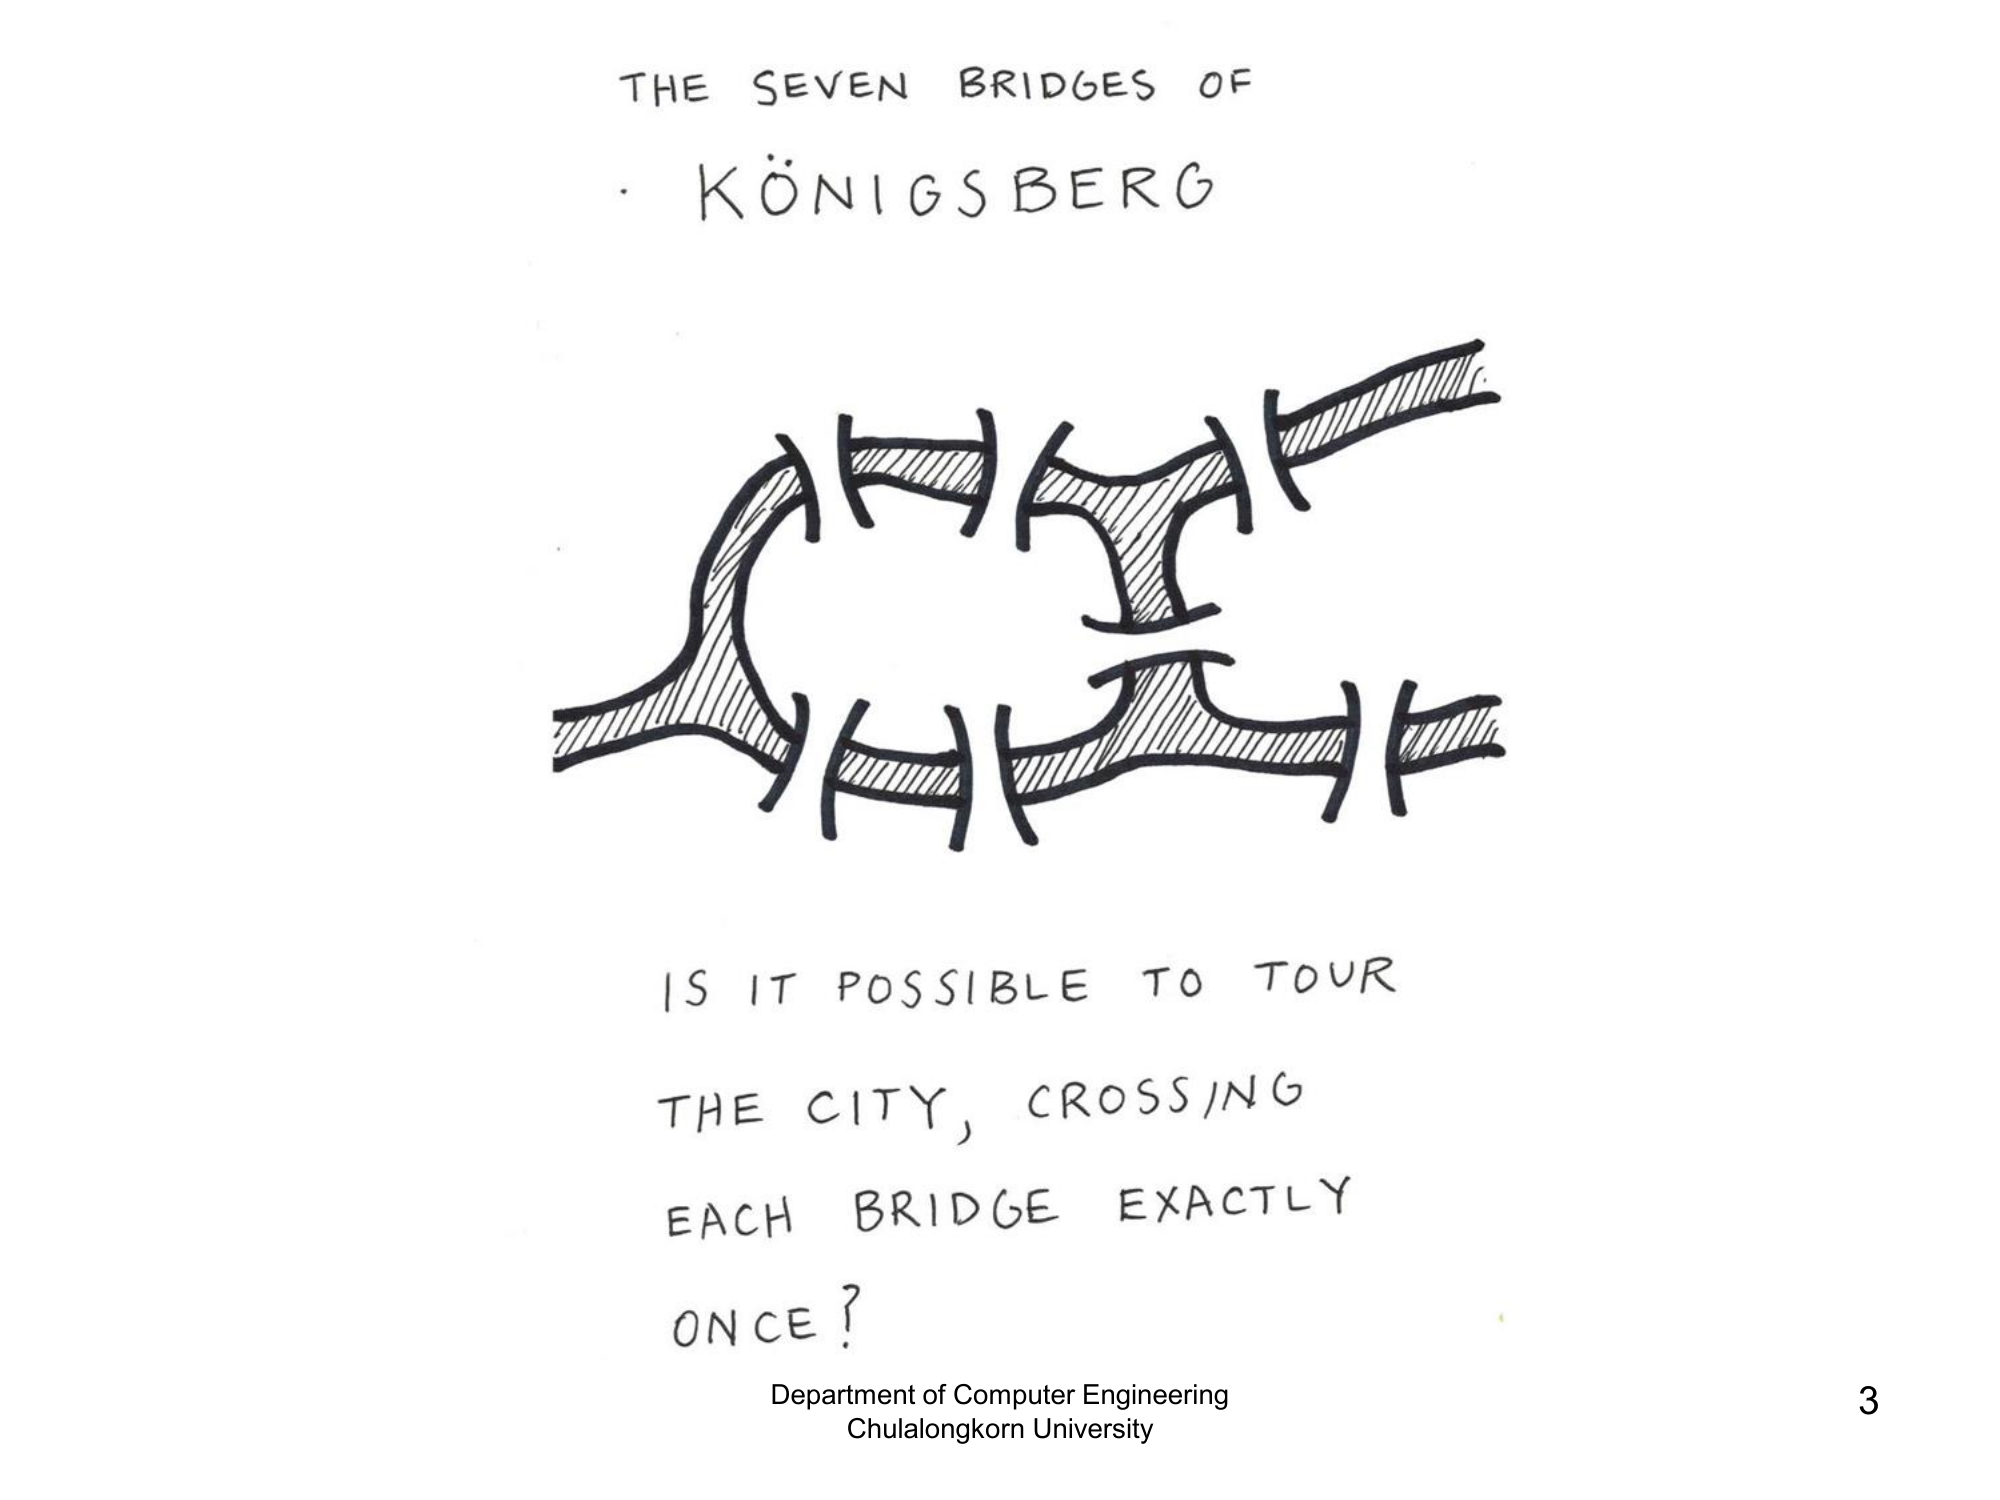 THE SEVEN BRIDGES OF
KÖNIGSBERG
IS IT POSSIBLE TO TOUR
THE CITY, CROSSING
EACH BRIDGE EXACTLY
ONCE?
Department of Computer Engineering
Chulalongkorn University
3